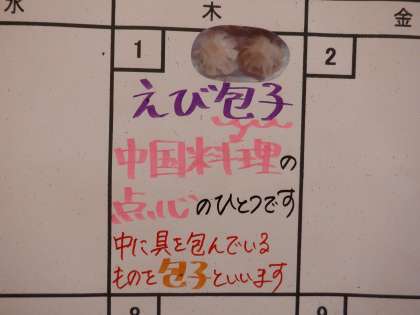 水 木 金
1 2
えび包子
中国料理の
点心のひとつです
中に具を包んでいる
ものを包子といいます
8 9